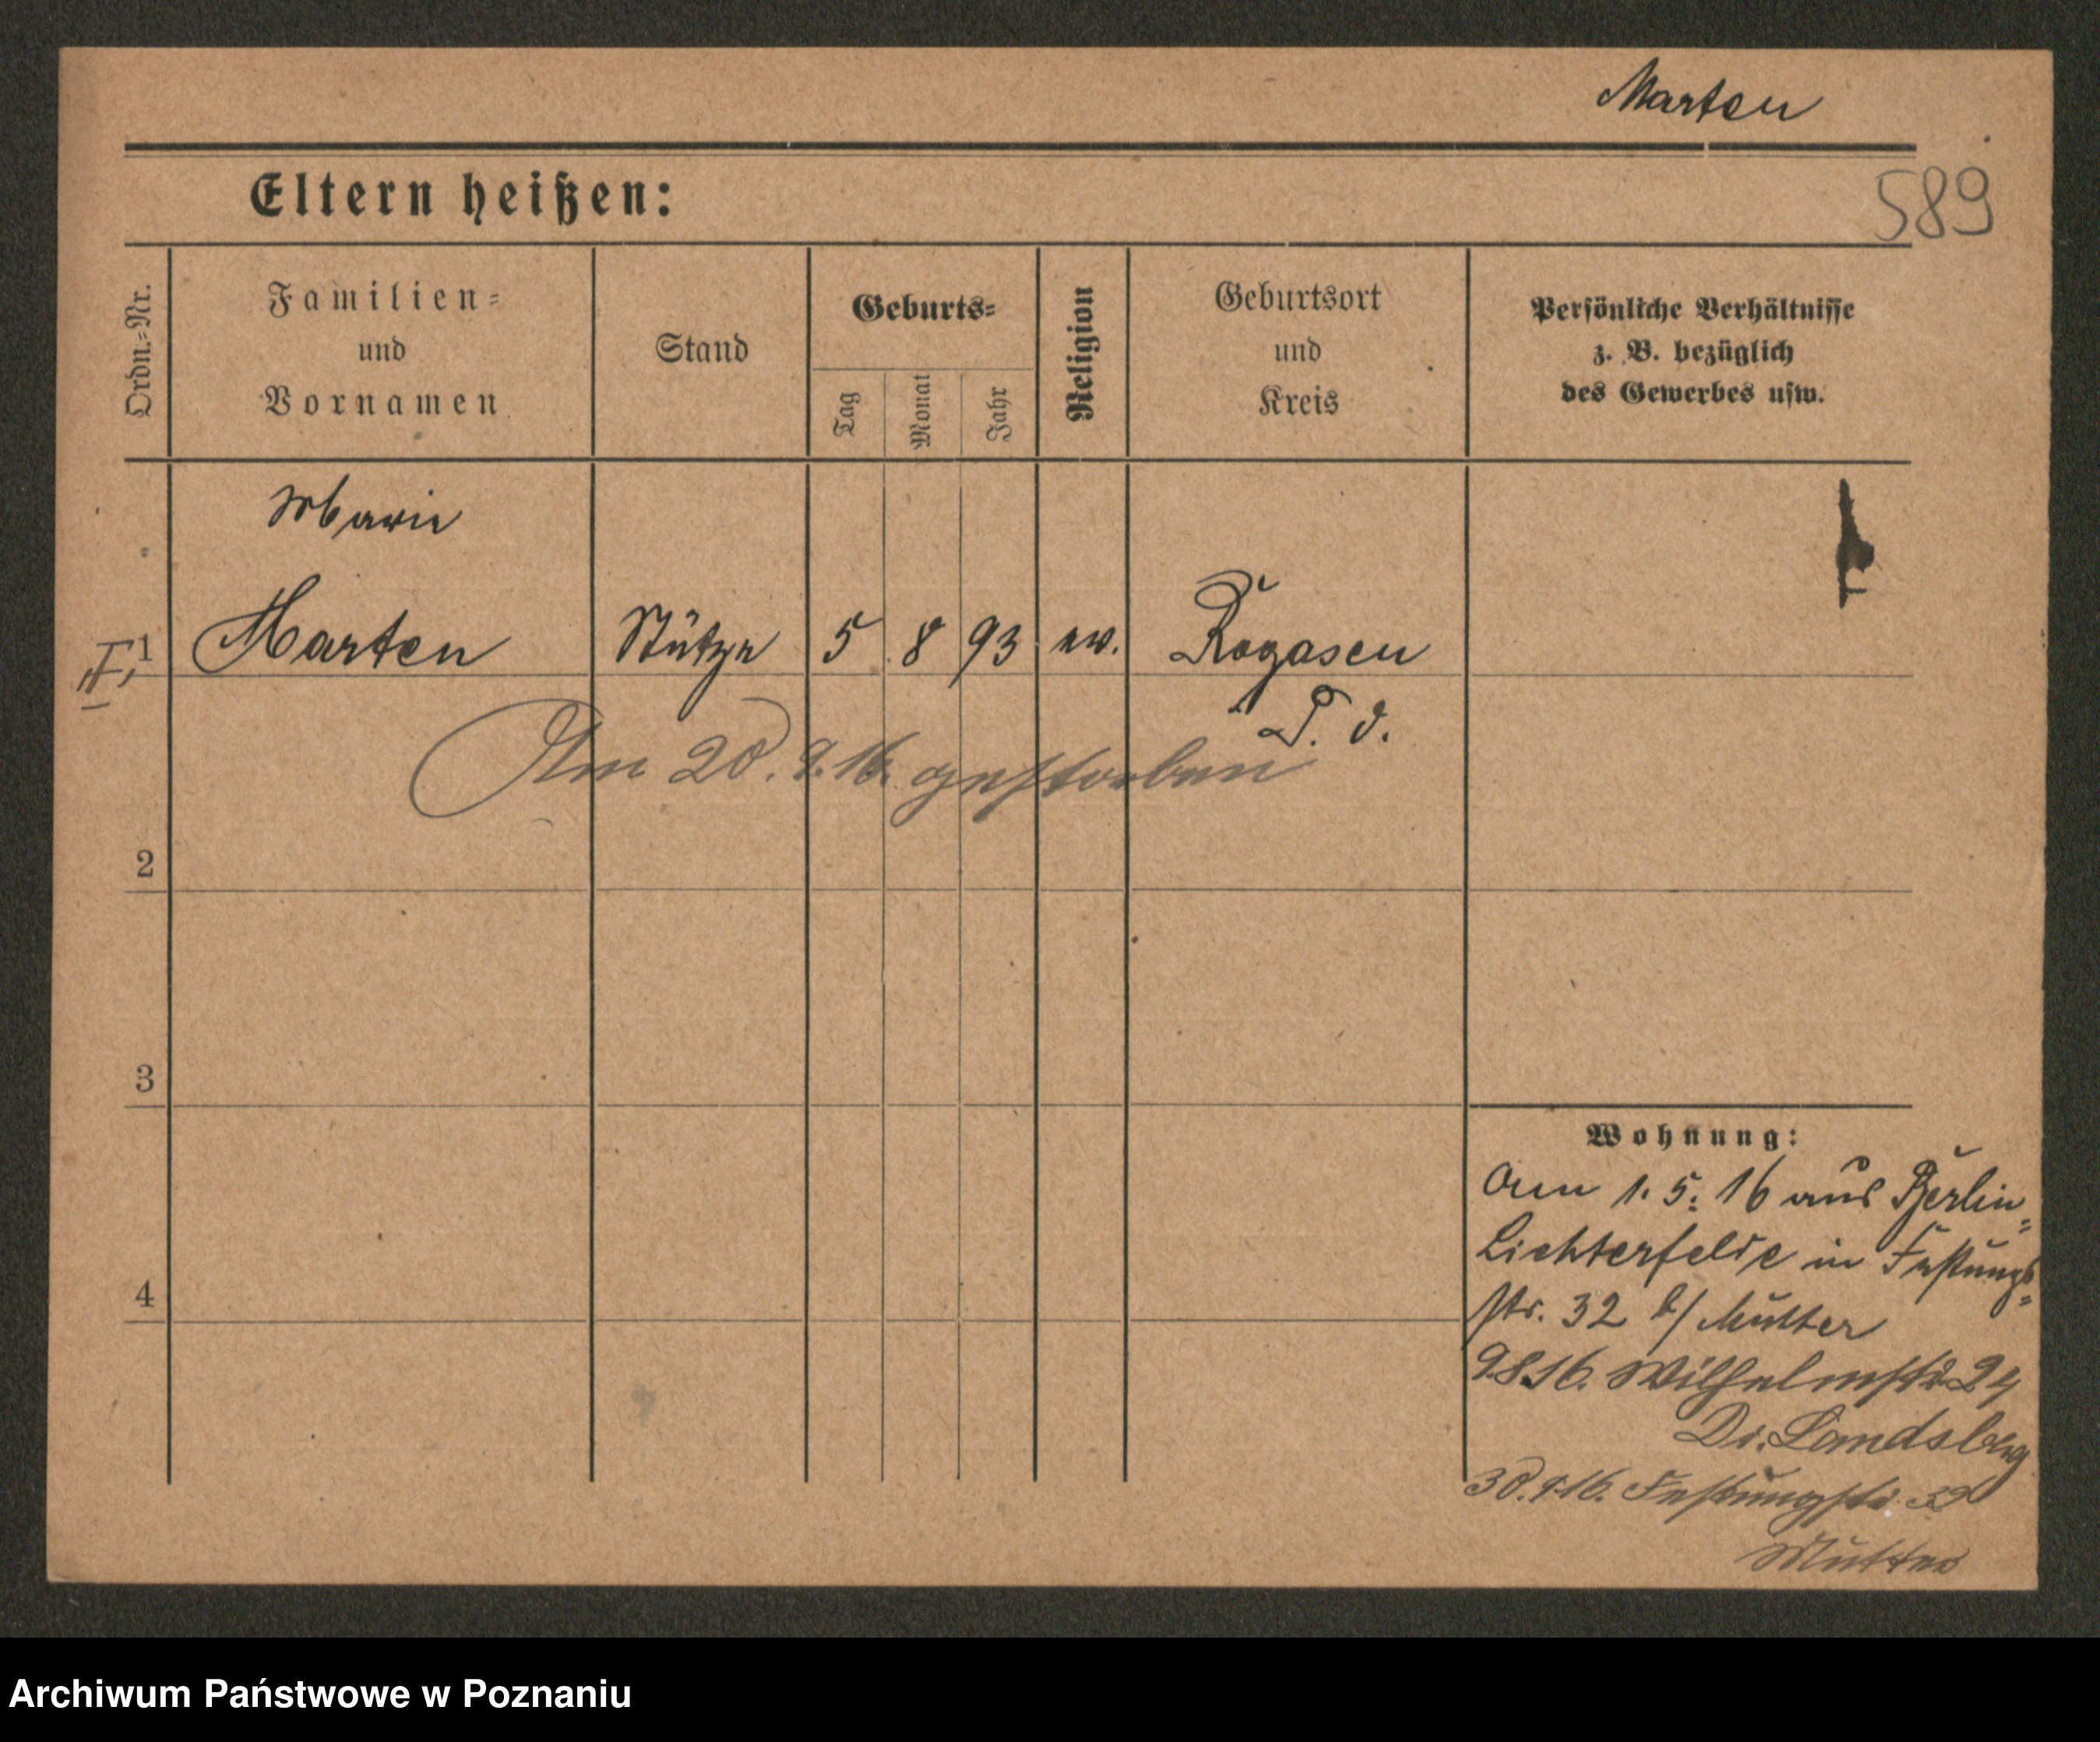 Marten
589
Eltern heißen:
Ordn.-Nr.
Familien-
und
Vornamen
Stand
Geburts-
Tag
Monat
Jahr
Religion
Geburtsort
und
Kreis
Persönliche Verhältnisse
z. B. bezüglich
des Gewerbes usw.
Marie
1 Marten Stütze 5 8 93 ev. Rogasen
P. d.
Am 20. 9. 16. gestorben
2
3
4
Wohnung:
Am 1. 5. 16 aus Berlin-
Lichterfelde in Festungs-
str. 32 b/ Mutter
9.8.16. Wilhelmstr. 24
Dr. Landsberg
30.9.16. Festungstr. 32
Mutter
Archiwum Państwowe w Poznaniu